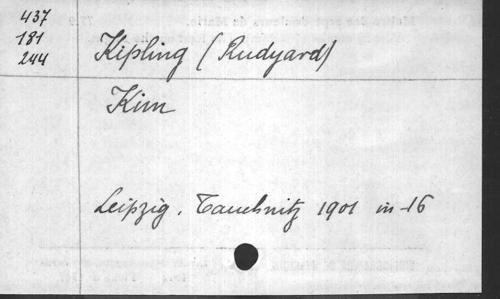 437
181
244
Kipling (Rudyard)
Kim
Leipzig, Tauchnitz 1901 in-16